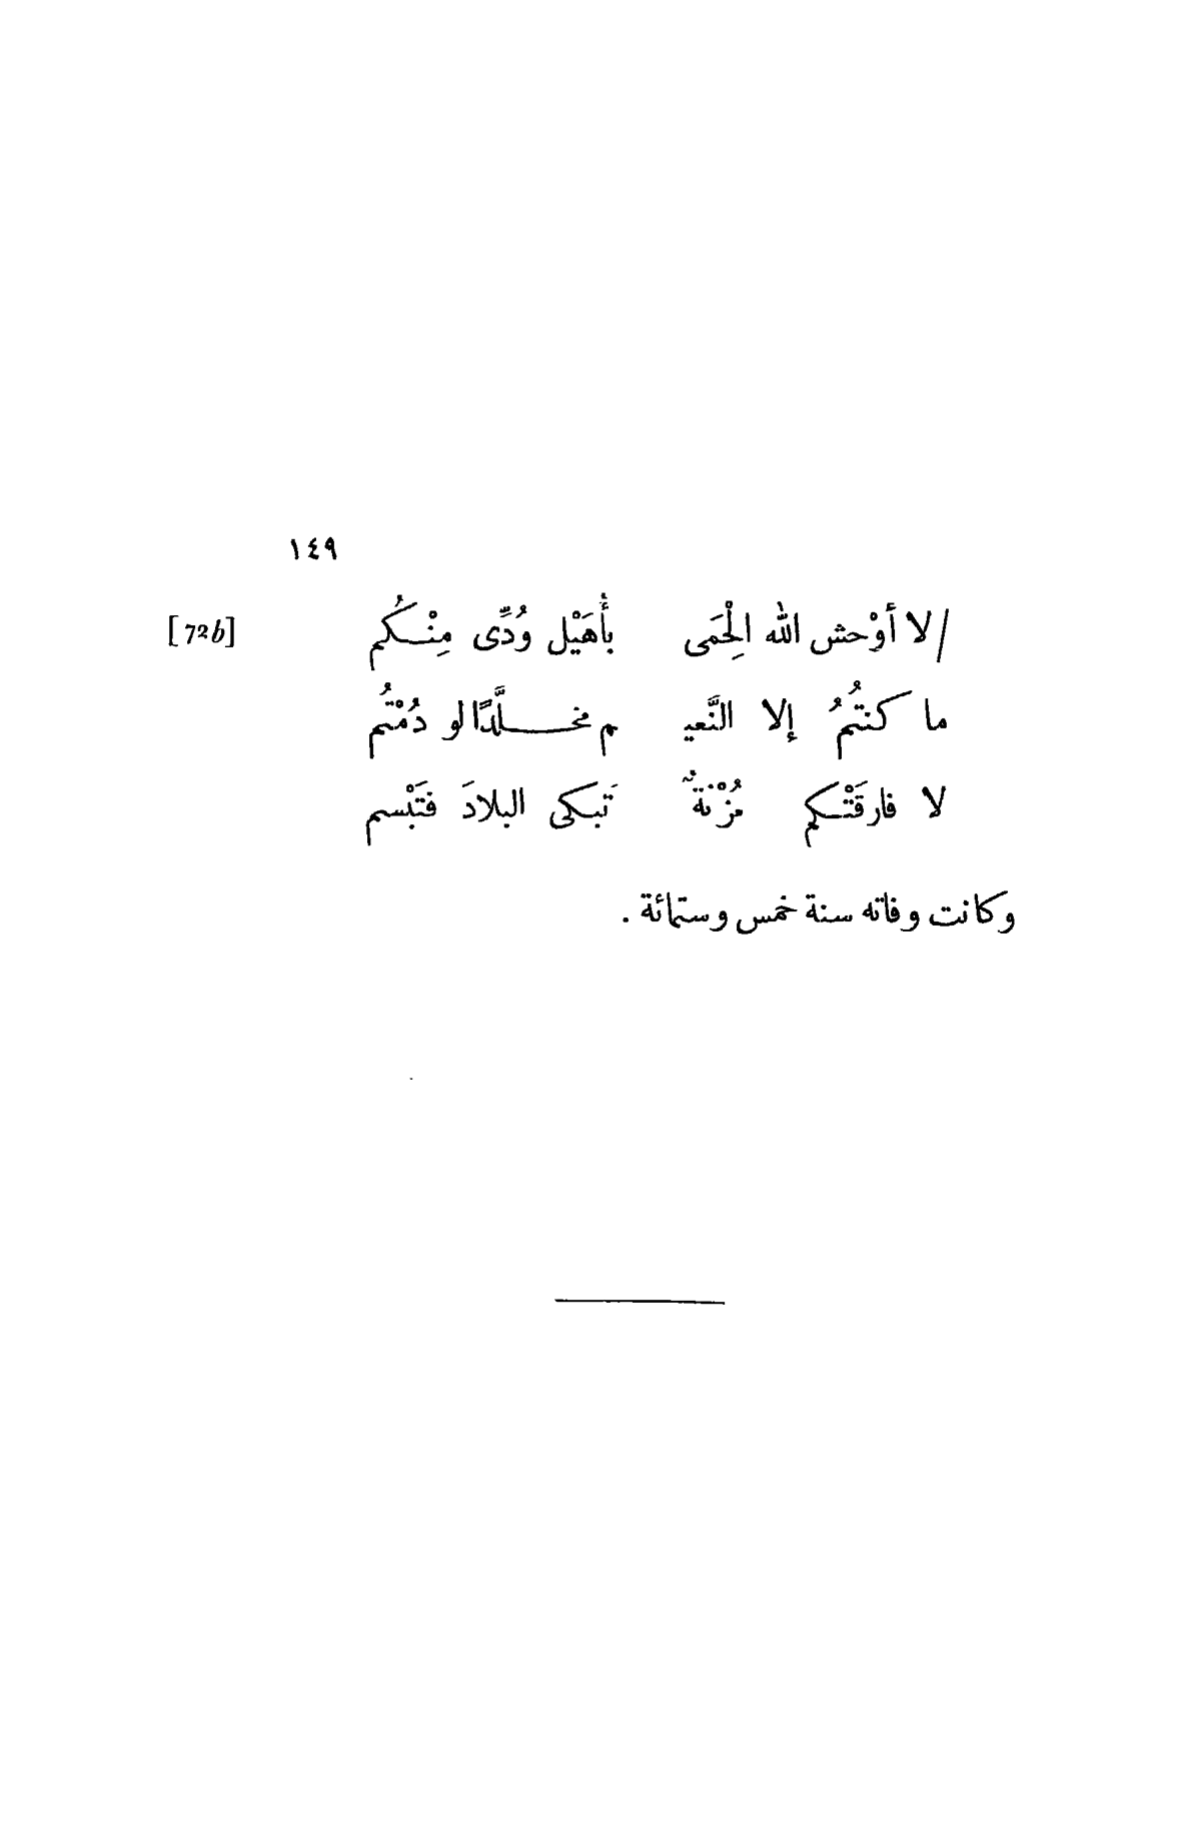 ١٤٩
/لا أوْحش الله الِحْمَى بأُهَيْل وُدِّى مِنْـكُم [72b]
ما كنتُمُ إلا النَّعيـ ـم مخـلَّدًا لو دُمْتُم
لا فارقَتْـكم مُزْنةٌ تَبـكى البلادَ فتَبْسم
وكانت وفاته سنة خمس وستمائة .